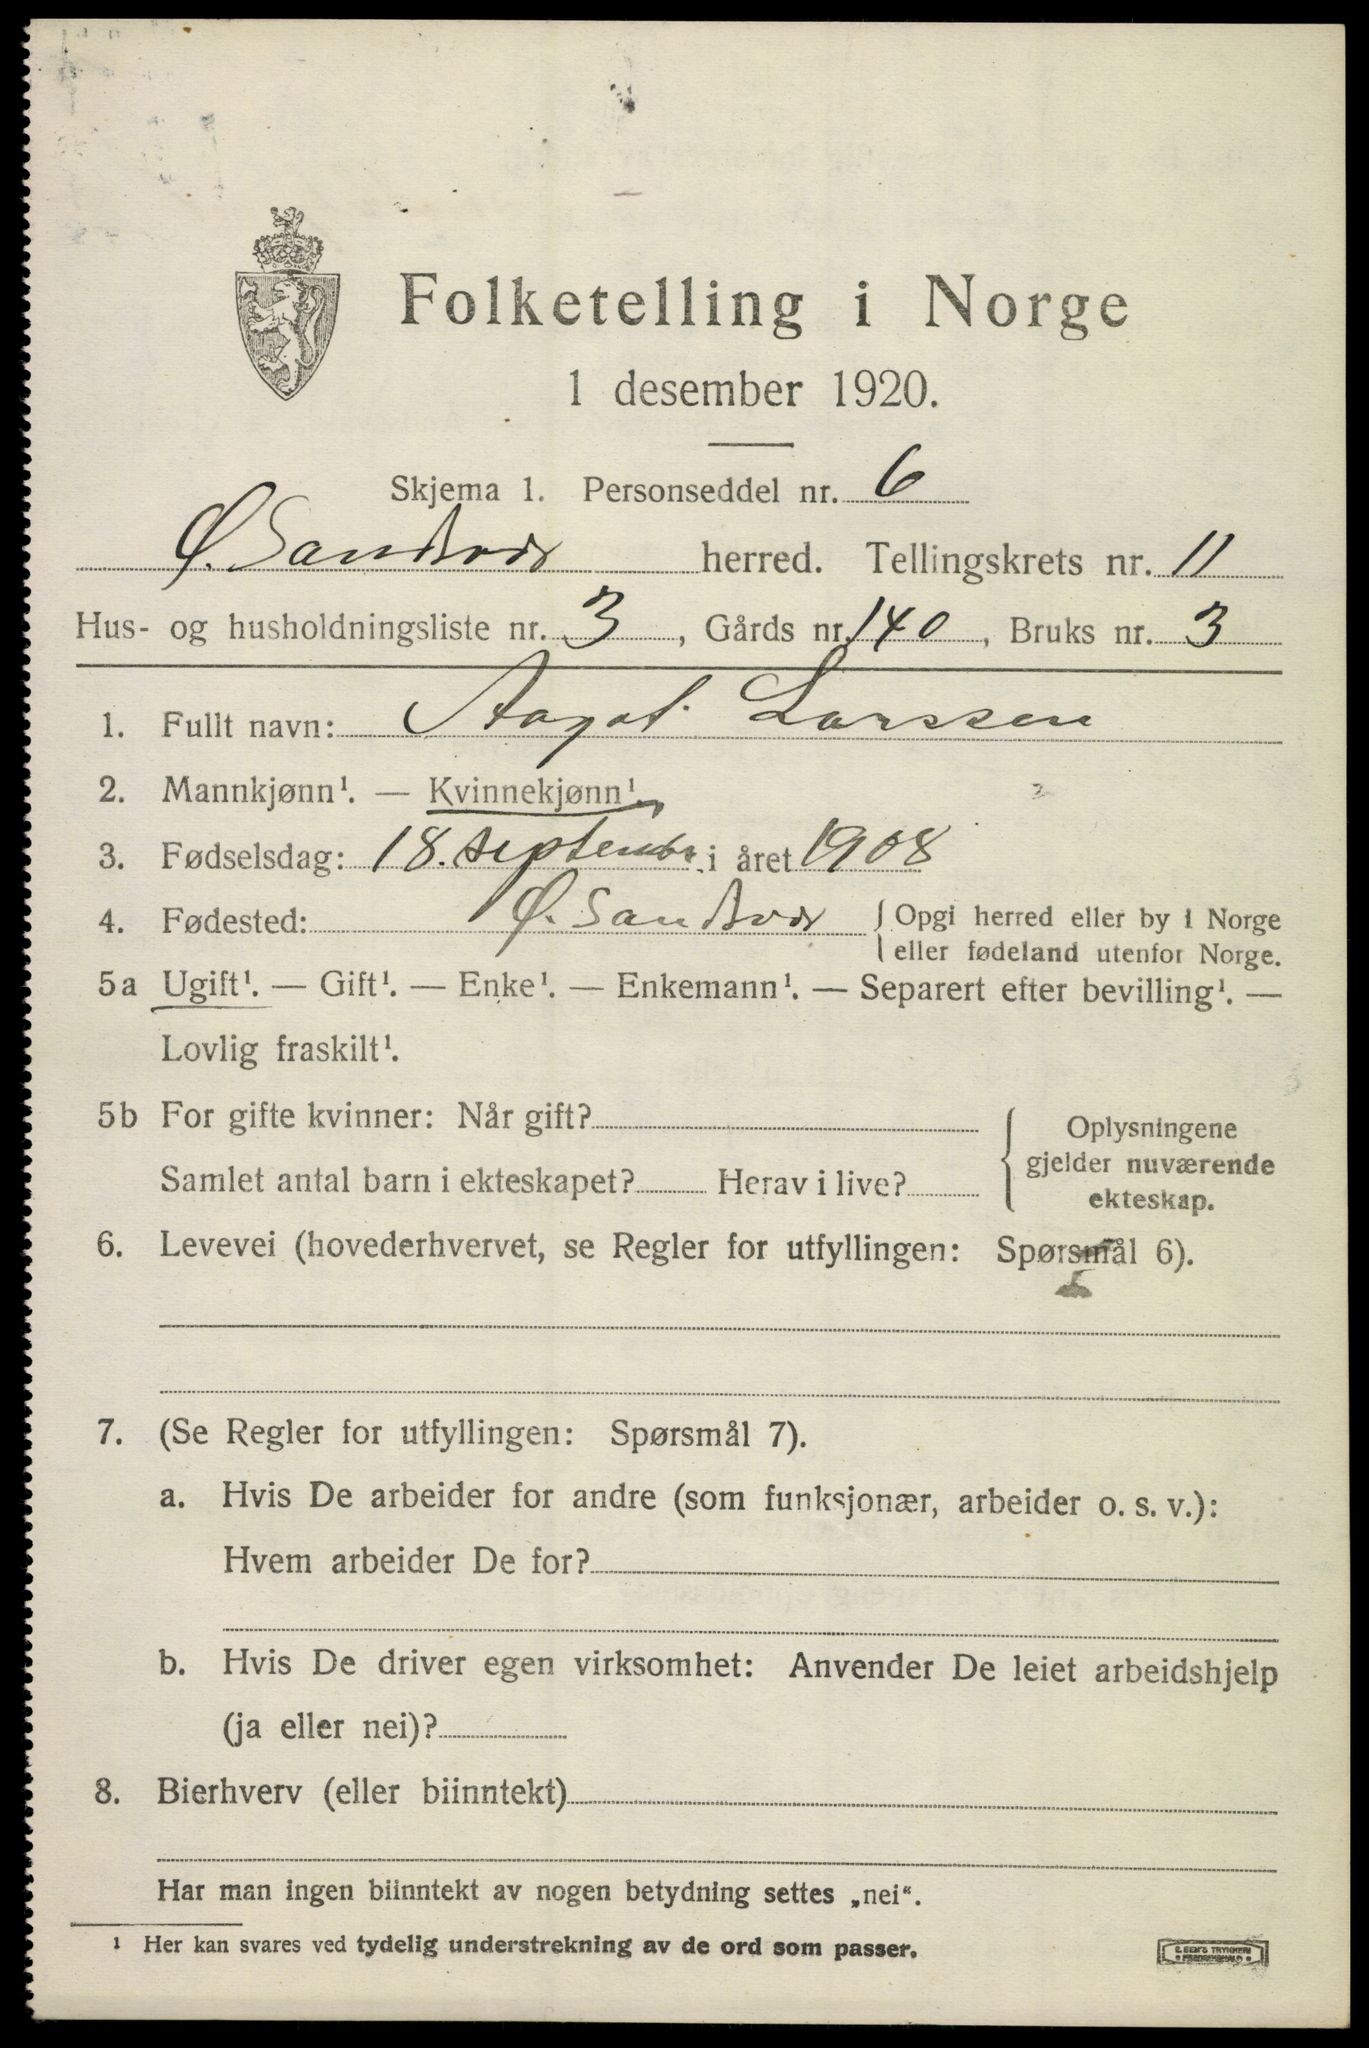 Folketelling i Norge
1 desember 1920.
Skjema 1. Personseddel nr. 6
Ø. Sandsvær herred. Tellingskrets nr. 11
Hus- og husholdningsliste nr. 3, Gårds nr. 140, Bruks nr. 3
1. Fullt navn: Aagot Larssen
2. Mannkjønn¹. — Kvinnekjønn¹.
3. Fødselsdag: 18. septembr i året 1908
4. Fødested: Ø. Sandsvær { Opgi herred eller by i Norge
eller fødeland utenfor Norge.
5a Ugift¹. — Gift¹. — Enke¹. — Enkemann¹. — Separert efter bevilling¹. —
Lovlig fraskilt¹.
5b For gifte kvinner: Når gift?
Samlet antal barn i ekteskapet? Herav i live?
Oplysningene
gjelder nuværende
ekteskap.
6. Levevei (hovederhvervet, se Regler for utfyllingen: Spørsmål 6).
7. (Se Regler for utfyllingen: Spørsmål 7).
a. Hvis De arbeider for andre (som funksjonær, arbeider o. s. v.):
Hvem arbeider De for?
b. Hvis De driver egen virksomhet: Anvender De leiet arbeidshjelp
(ja eller nei)?
8. Bierhverv (eller biinntekt)
Har man ingen biinntekt av nogen betydning settes „nei“.
¹ Her kan svares ved tydelig understrekning av de ord som passer.